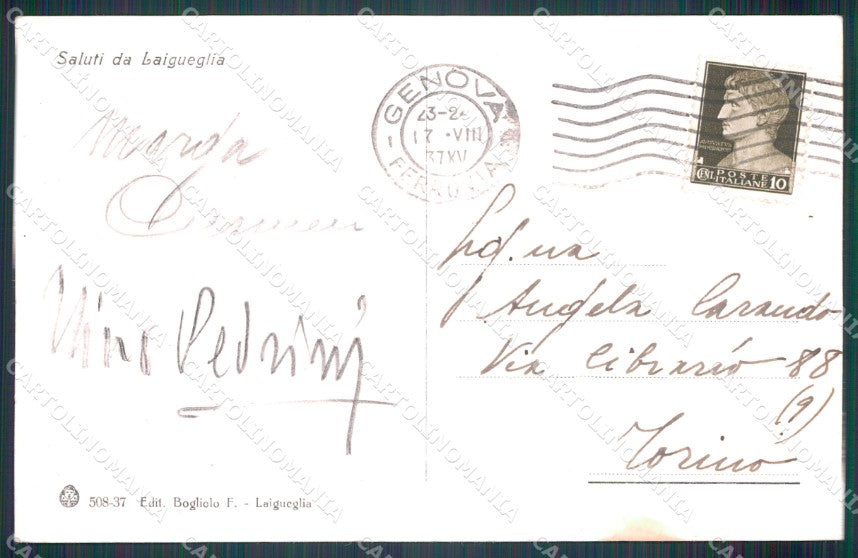 Saluti da Laigueglia
Nino Pedrini
508-37 Edit. Bogliolo F. - Laigueglia
GENOVA
23-2
17 ·VIII
37 XV
FERROVIA
POSTE
CENT. ITALIANE 10
Angela Carando
Via Cibrario 88
(9)
Torino
CARTOLINOMANIA